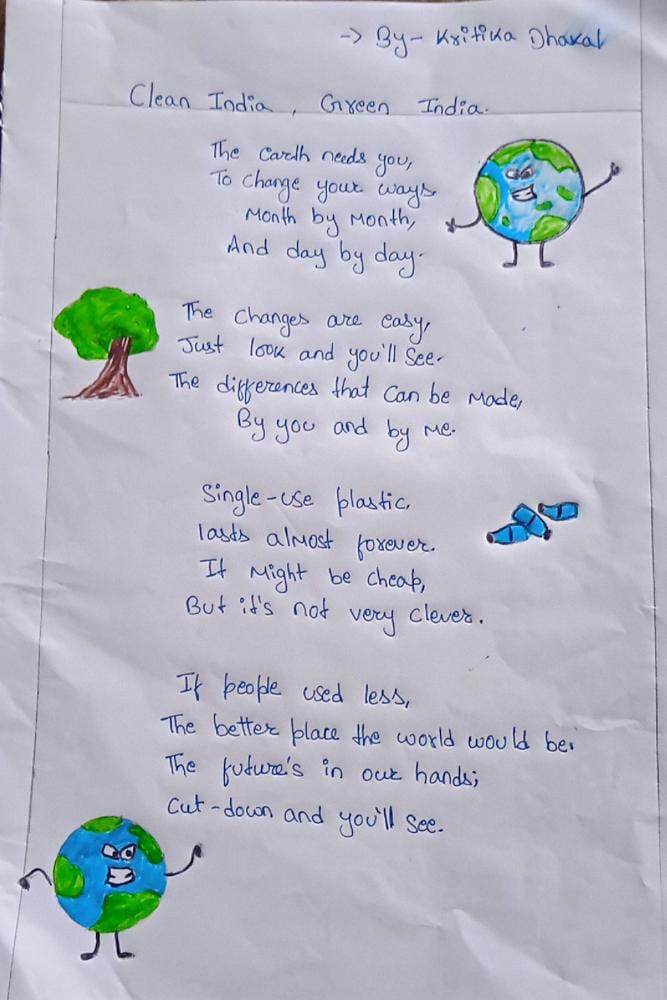 -> By- Kritika Dhakal
Clean India, Green India.
The earth needs you,
To change your ways
Month by Month,
And day by day.
The changes are easy,
Just look and you'll See.
The differences that can be Made,
By you and by Me.
Single-use plastic,
lasts almost forever.
It Might be cheap,
But it's not very clever.
If people used less,
The better place the world would be.
The future's in our hands;
Cut-down and you'll See.